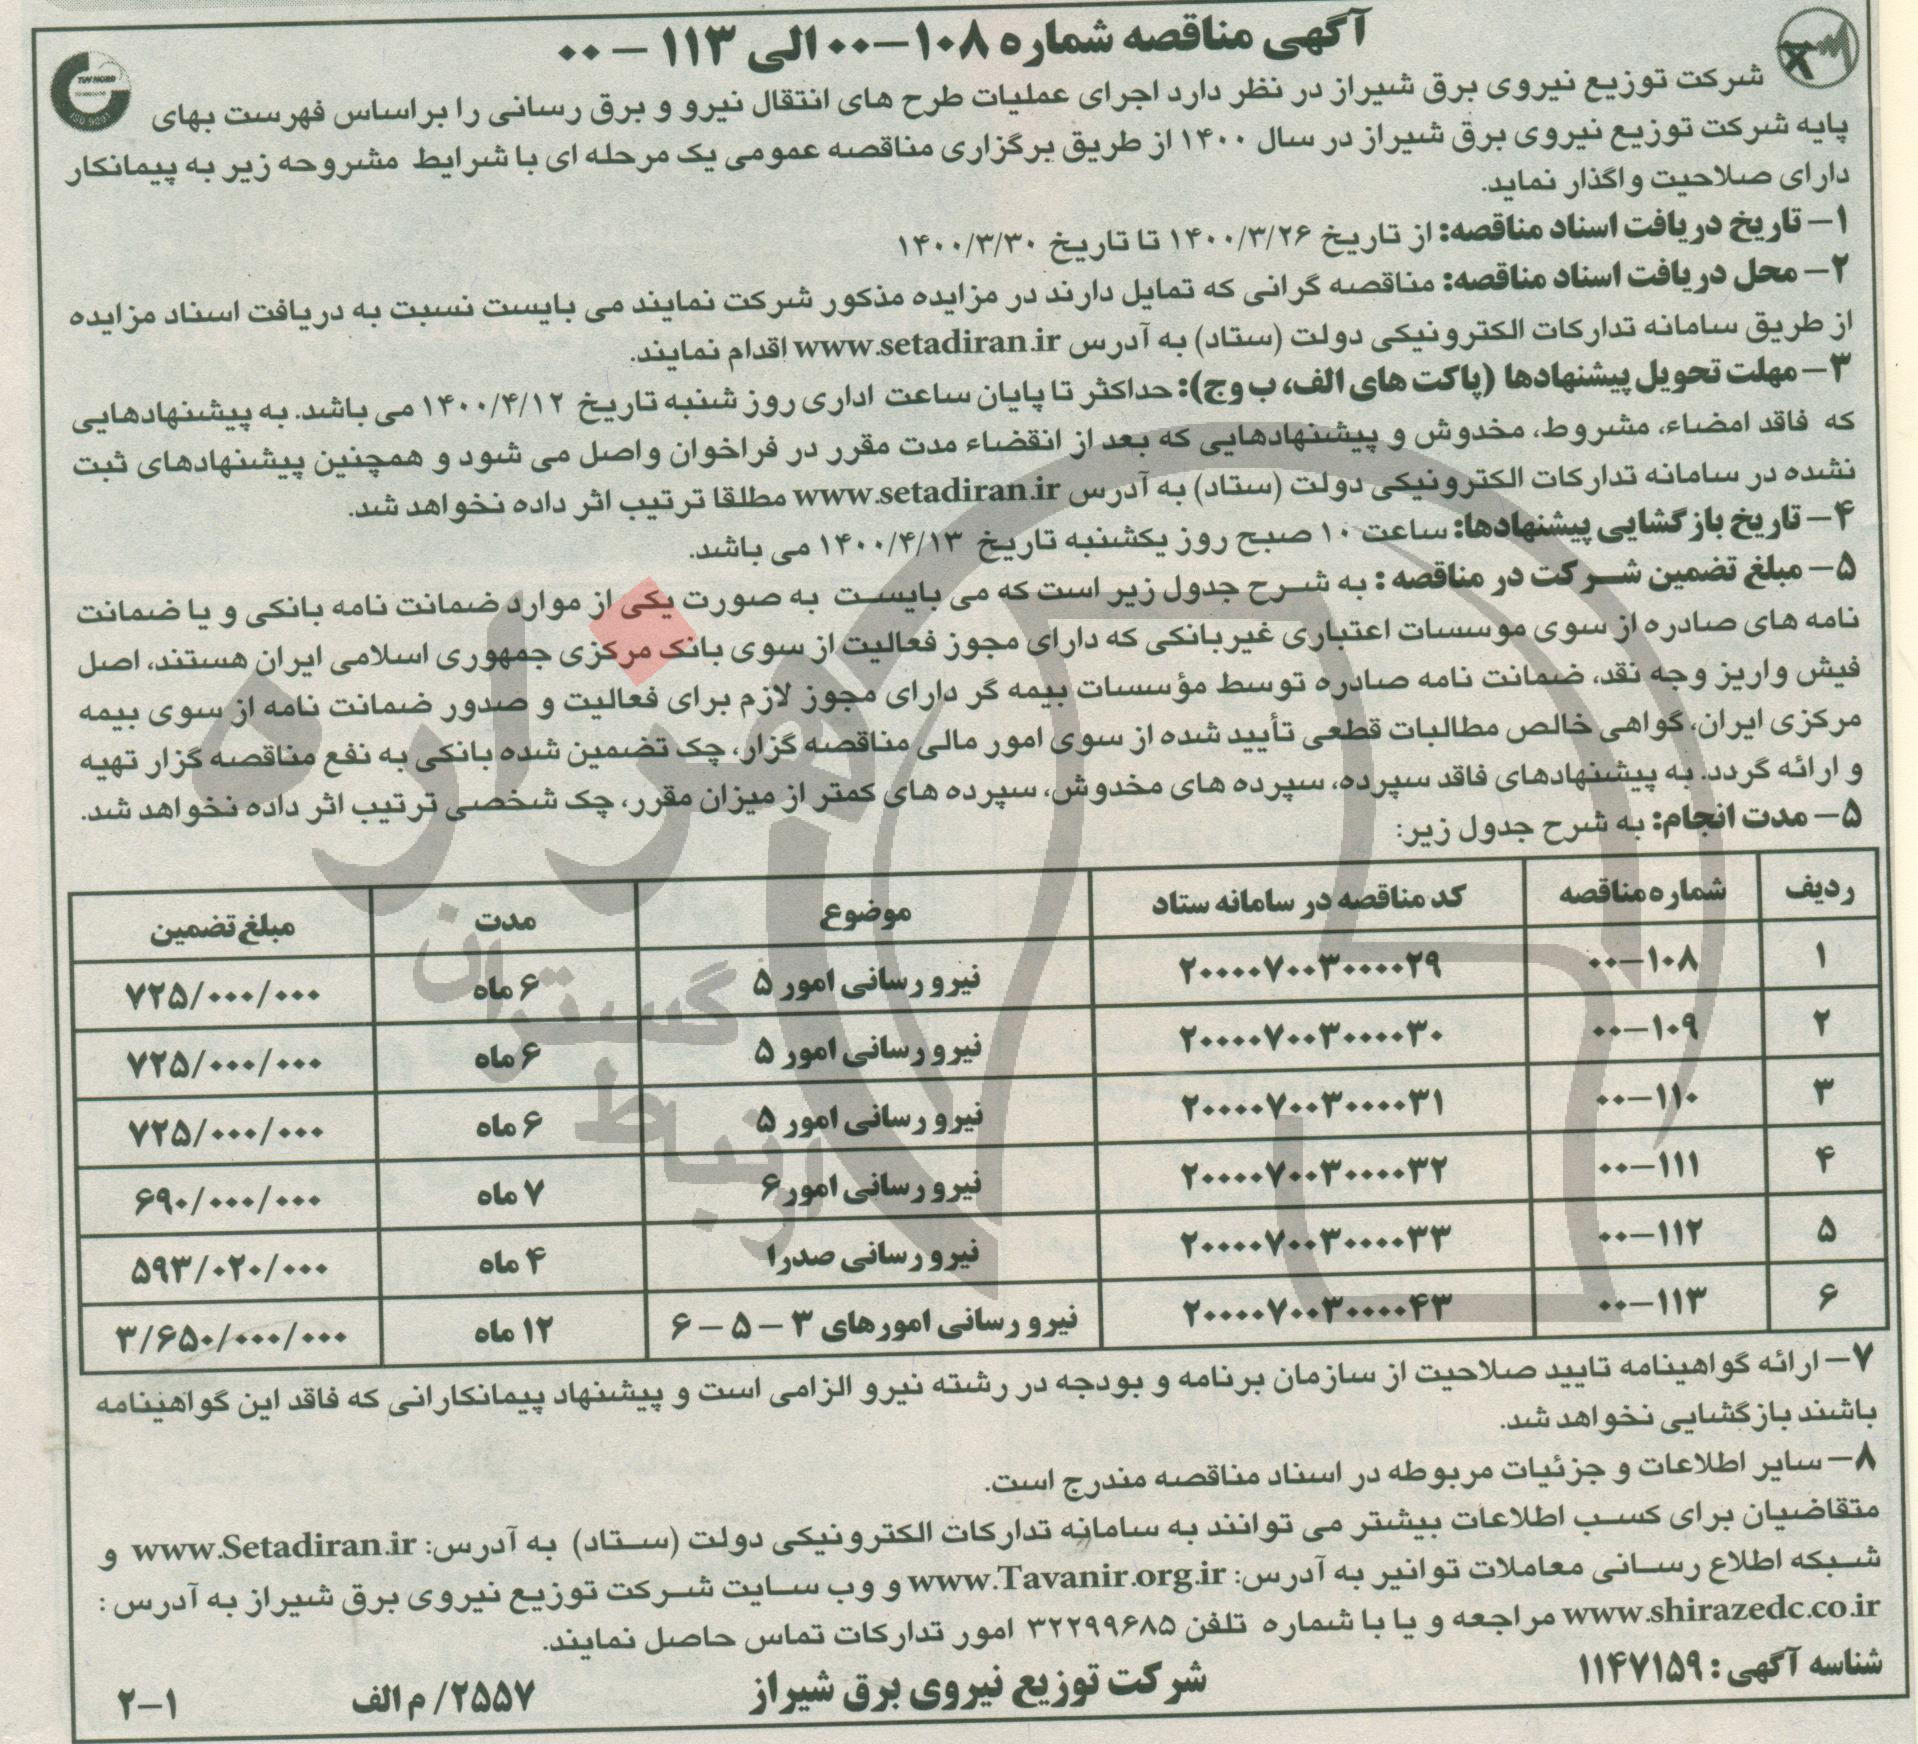 آگهی مناقصه شماره ۱۰۸-۰۰ الی ۱۱۳ - ۰۰
شرکت توزیع نیروی برق شیراز در نظر دارد اجرای عملیات طرح های انتقال نیرو و برق رسانی را براساس فهرست بهای
پایه شرکت توزیع نیروی برق شیراز در سال ۱۴۰۰ از طریق برگزاری مناقصه عمومی یک مرحله ای با شرایط مشروحه زیر به پیمانکار
دارای صلاحیت واگذار نماید.
۱- تاریخ دریافت اسناد مناقصه: از تاریخ ۱۴۰۰/۳/۲۶ تا تاریخ ۱۴۰۰/۳/۳۰
۲- محل دریافت اسناد مناقصه: مناقصه گرانی که تمایل دارند در مزایده مذکور شرکت نمایند می بایست نسبت به دریافت اسناد مزایده
از طریق سامانه تدارکات الکترونیکی دولت (ستاد) به آدرس www.setadiran.ir اقدام نمایند.
۳- مهلت تحویل پیشنهادها (پاکت های الف، ب وج): حداکثر تا پایان ساعت اداری روز شنبه تاریخ ۱۴۰۰/۴/۱۲ می باشد. به پیشنهادهایی
که فاقد امضاء، مشروط، مخدوش و پیشنهادهایی که بعد از انقضاء مدت مقرر در فراخوان واصل می شود و همچنین پیشنهادهای ثبت
نشده در سامانه تدارکات الکترونیکی دولت (ستاد) به آدرس www.setadiran.ir مطلقا ترتیب اثر داده نخواهد شد.
۴- تاریخ بازگشایی پیشنهادها: ساعت ۱۰ صبح روز یکشنبه تاریخ ۱۴۰۰/۴/۱۳ می باشد.
۵- مبلغ تضمین شرکت در مناقصه : به شرح جدول زیر است که می بایست به صورت یکی از موارد ضمانت نامه بانکی و یا ضمانت
نامه های صادره از سوی موسسات اعتباری غیربانکی که دارای مجوز فعالیت از سوی بانک مرکزی جمهوری اسلامی ایران هستند، اصل
فیش واریز وجه نقد، ضمانت نامه صادره توسط مؤسسات بیمه گر دارای مجوز لازم برای فعالیت و صدور ضمانت نامه از سوی بیمه
مرکزی ایران، گواهی خالص مطالبات قطعی تأیید شده از سوی امور مالی مناقصه گزار، چک تضمین شده بانکی به نفع مناقصه گزار تهیه
و ارائه گردد. به پیشنهادهای فاقد سپرده، سپرده های مخدوش، سپرده های کمتر از میزان مقرر، چک شخصی ترتیب اثر داده نخواهد شد.
۵- مدت انجام: به شرح جدول زیر:
ردیف شماره مناقصه کد مناقصه در سامانه ستاد موضوع مدت مبلغ تضمین
۱ ۱۰۸-۰۰ ۲۰۰۰۰۷۰۰۳۰۰۰۰۲۹ نیرو رسانی امور ۵ ۶ ماه ۷۲۵/۰۰۰/۰۰۰
۲ ۱۰۹-۰۰ ۲۰۰۰۰۷۰۰۳۰۰۰۰۳۰ نیرو رسانی امور ۵ ۶ ماه ۷۲۵/۰۰۰/۰۰۰
۳ ۱۱۰-۰۰ ۲۰۰۰۰۷۰۰۳۰۰۰۰۳۱ نیرو رسانی امور ۵ ۶ ماه ۷۲۵/۰۰۰/۰۰۰
۴ ۱۱۱-۰۰ ۲۰۰۰۰۷۰۰۳۰۰۰۰۳۲ نیرو رسانی امور ۶ ۷ ماه ۶۹۰/۰۰۰/۰۰۰
۵ ۱۱۲-۰۰ ۲۰۰۰۰۷۰۰۳۰۰۰۰۳۳ نیرو رسانی صدرا ۴ ماه ۵۹۳/۰۲۰/۰۰۰
۶ ۱۱۳-۰۰ ۲۰۰۰۰۷۰۰۳۰۰۰۰۴۳ نیرو رسانی امورهای ۳ - ۵ - ۶ ۱۲ ماه ۳/۶۵۰/۰۰۰/۰۰۰
۷- ارائه گواهینامه تایید صلاحیت از سازمان برنامه و بودجه در رشته نیرو الزامی است و پیشنهاد پیمانکارانی که فاقد این گواهینامه
باشند بازگشایی نخواهد شد.
۸- سایر اطلاعات و جزئیات مربوطه در اسناد مناقصه مندرج است.
متقاضیان برای کسب اطلاعات بیشتر می توانند به سامانه تدارکات الکترونیکی دولت (ستاد) به آدرس: www.Setadiran.ir و
شبکه اطلاع رسانی معاملات توانیر به آدرس: www.Tavanir.org.ir و وب سایت شرکت توزیع نیروی برق شیراز به آدرس :
www.shirazedc.co.ir مراجعه و یا با شماره تلفن ۳۲۲۹۹۶۸۵ امور تدارکات تماس حاصل نمایند.
شناسه آگهی : ۱۱۴۷۱۵۹
شرکت توزیع نیروی برق شیراز ۲۵۵۷/ م الف ۲-۱